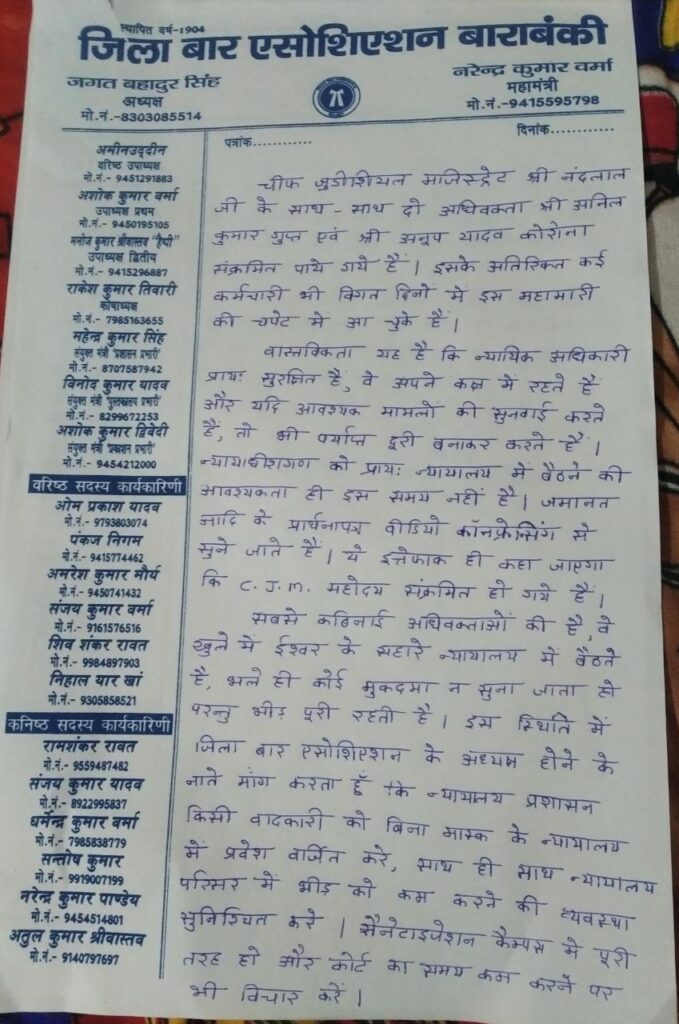 स्थापित वर्ष-1904
जिला बार एसोशिएशन बाराबंकी
जगत बहादुर सिंह
अध्यक्ष
मो.नं.-8303085514
नरेन्द्र कुमार वर्मा
महामंत्री
मो.नं.-9415595798
पत्रांक............
दिनांक............
अमीनउद्दीन
वरिष्ठ उपाध्यक्ष
मो.नं.- 9451291883
अशोक कुमार वर्मा
उपाध्यक्ष प्रथम
मो.नं.- 9450195105
मनोज कुमार श्रीवास्तव "हैप्पी"
उपाध्यक्ष द्वितीय
मो.नं.- 9415296887
राकेश कुमार तिवारी
कोषाध्यक्ष
मो.नं.- 7985163655
महेन्द्र कुमार सिंह
संयुक्त मंत्री 'प्रशासन प्रभारी'
मो.नं.- 8707587942
विनोद कुमार यादव
संयुक्त मंत्री 'पुस्तकालय प्रभारी'
मो.नं.- 8299672253
अशोक कुमार द्विवेदी
संयुक्त मंत्री 'प्रकाशन प्रभारी'
मो.नं.- 9454212000
वरिष्ठ सदस्य कार्यकारिणी
ओम प्रकाश यादव
मो.नं.- 9793803074
पंकज निगम
मो.नं.- 9415774462
अमरेश कुमार मौर्य
मो.नं.- 9450741432
संजय कुमार वर्मा
मो.नं.- 9161576516
शिव शंकर रावत
मो.नं.- 9984897903
निहाल यार खां
मो.नं.- 9305858521
कनिष्ठ सदस्य कार्यकारिणी
रामशंकर रावत
मो.नं.- 9559487482
संजय कुमार यादव
मो.नं.- 8922995837
धर्मेन्द्र कुमार वर्मा
मो.नं.- 7985838779
सन्तोष कुमार
मो.नं.- 9919007199
नरेन्द्र कुमार पाण्डेय
मो.नं.- 9454514801
अतुल कुमार श्रीवास्तव
मो.नं.- 9140797697
चीफ जुडीशियल मजिस्ट्रेट श्री नंदलाल
जी के साथ-साथ दो अधिवक्ता श्री अनिल
कुमार गुप्त एवं श्री अनूप यादव कोरोना
संक्रमित पाये गये हैं। इसके अतिरिक्त कई
कर्मचारी भी विगत दिनों में इस महामारी
की चपेट में आ चुके हैं।
वास्तविकता यह है कि न्यायिक अधिकारी
प्रायः सुरक्षित है, वे अपने कक्ष में रहते हैं
और यदि आवश्यक मामलों की सुनवाई करते
हैं, तो भी पर्याप्त दूरी बनाकर करते हैं।
न्यायाधीशगण को प्रायः न्यायालय में बैठने की
आवश्यकता ही इस समय नहीं है। जमानत
आदि के प्रार्थनापत्र वीडियो कॉनफ्रेन्सिंग से
सुने जाते हैं। ये इत्तेफाक ही कहा जाएगा
कि C.J.M. महोदय संक्रमित हो गये हैं।
सबसे कठिनाई अधिवक्ताओं की है, वे
खुले में ईश्वर के सहारे न्यायालय में बैठते
है, भले ही कोई मुकदमा न सुना जाता हो
परन्तु भीड़ पूरी रहती है। इस स्थिति में
जिला बार एसोशिएशन के अध्यक्ष होने के
नाते मांग करता हूँ कि न्यायालय प्रशासन
किसी वादकारी को बिना मास्क के न्यायालय
में प्रवेश वर्जित करे, साथ ही साथ न्यायालय
परिसर में भीड़ को कम करने की व्यवस्था
सुनिश्चित करे। सैनेटाइजेशन कैम्पस में पूरी
तरह हो और कोर्ट का समय कम करने पर
भी विचार करें।